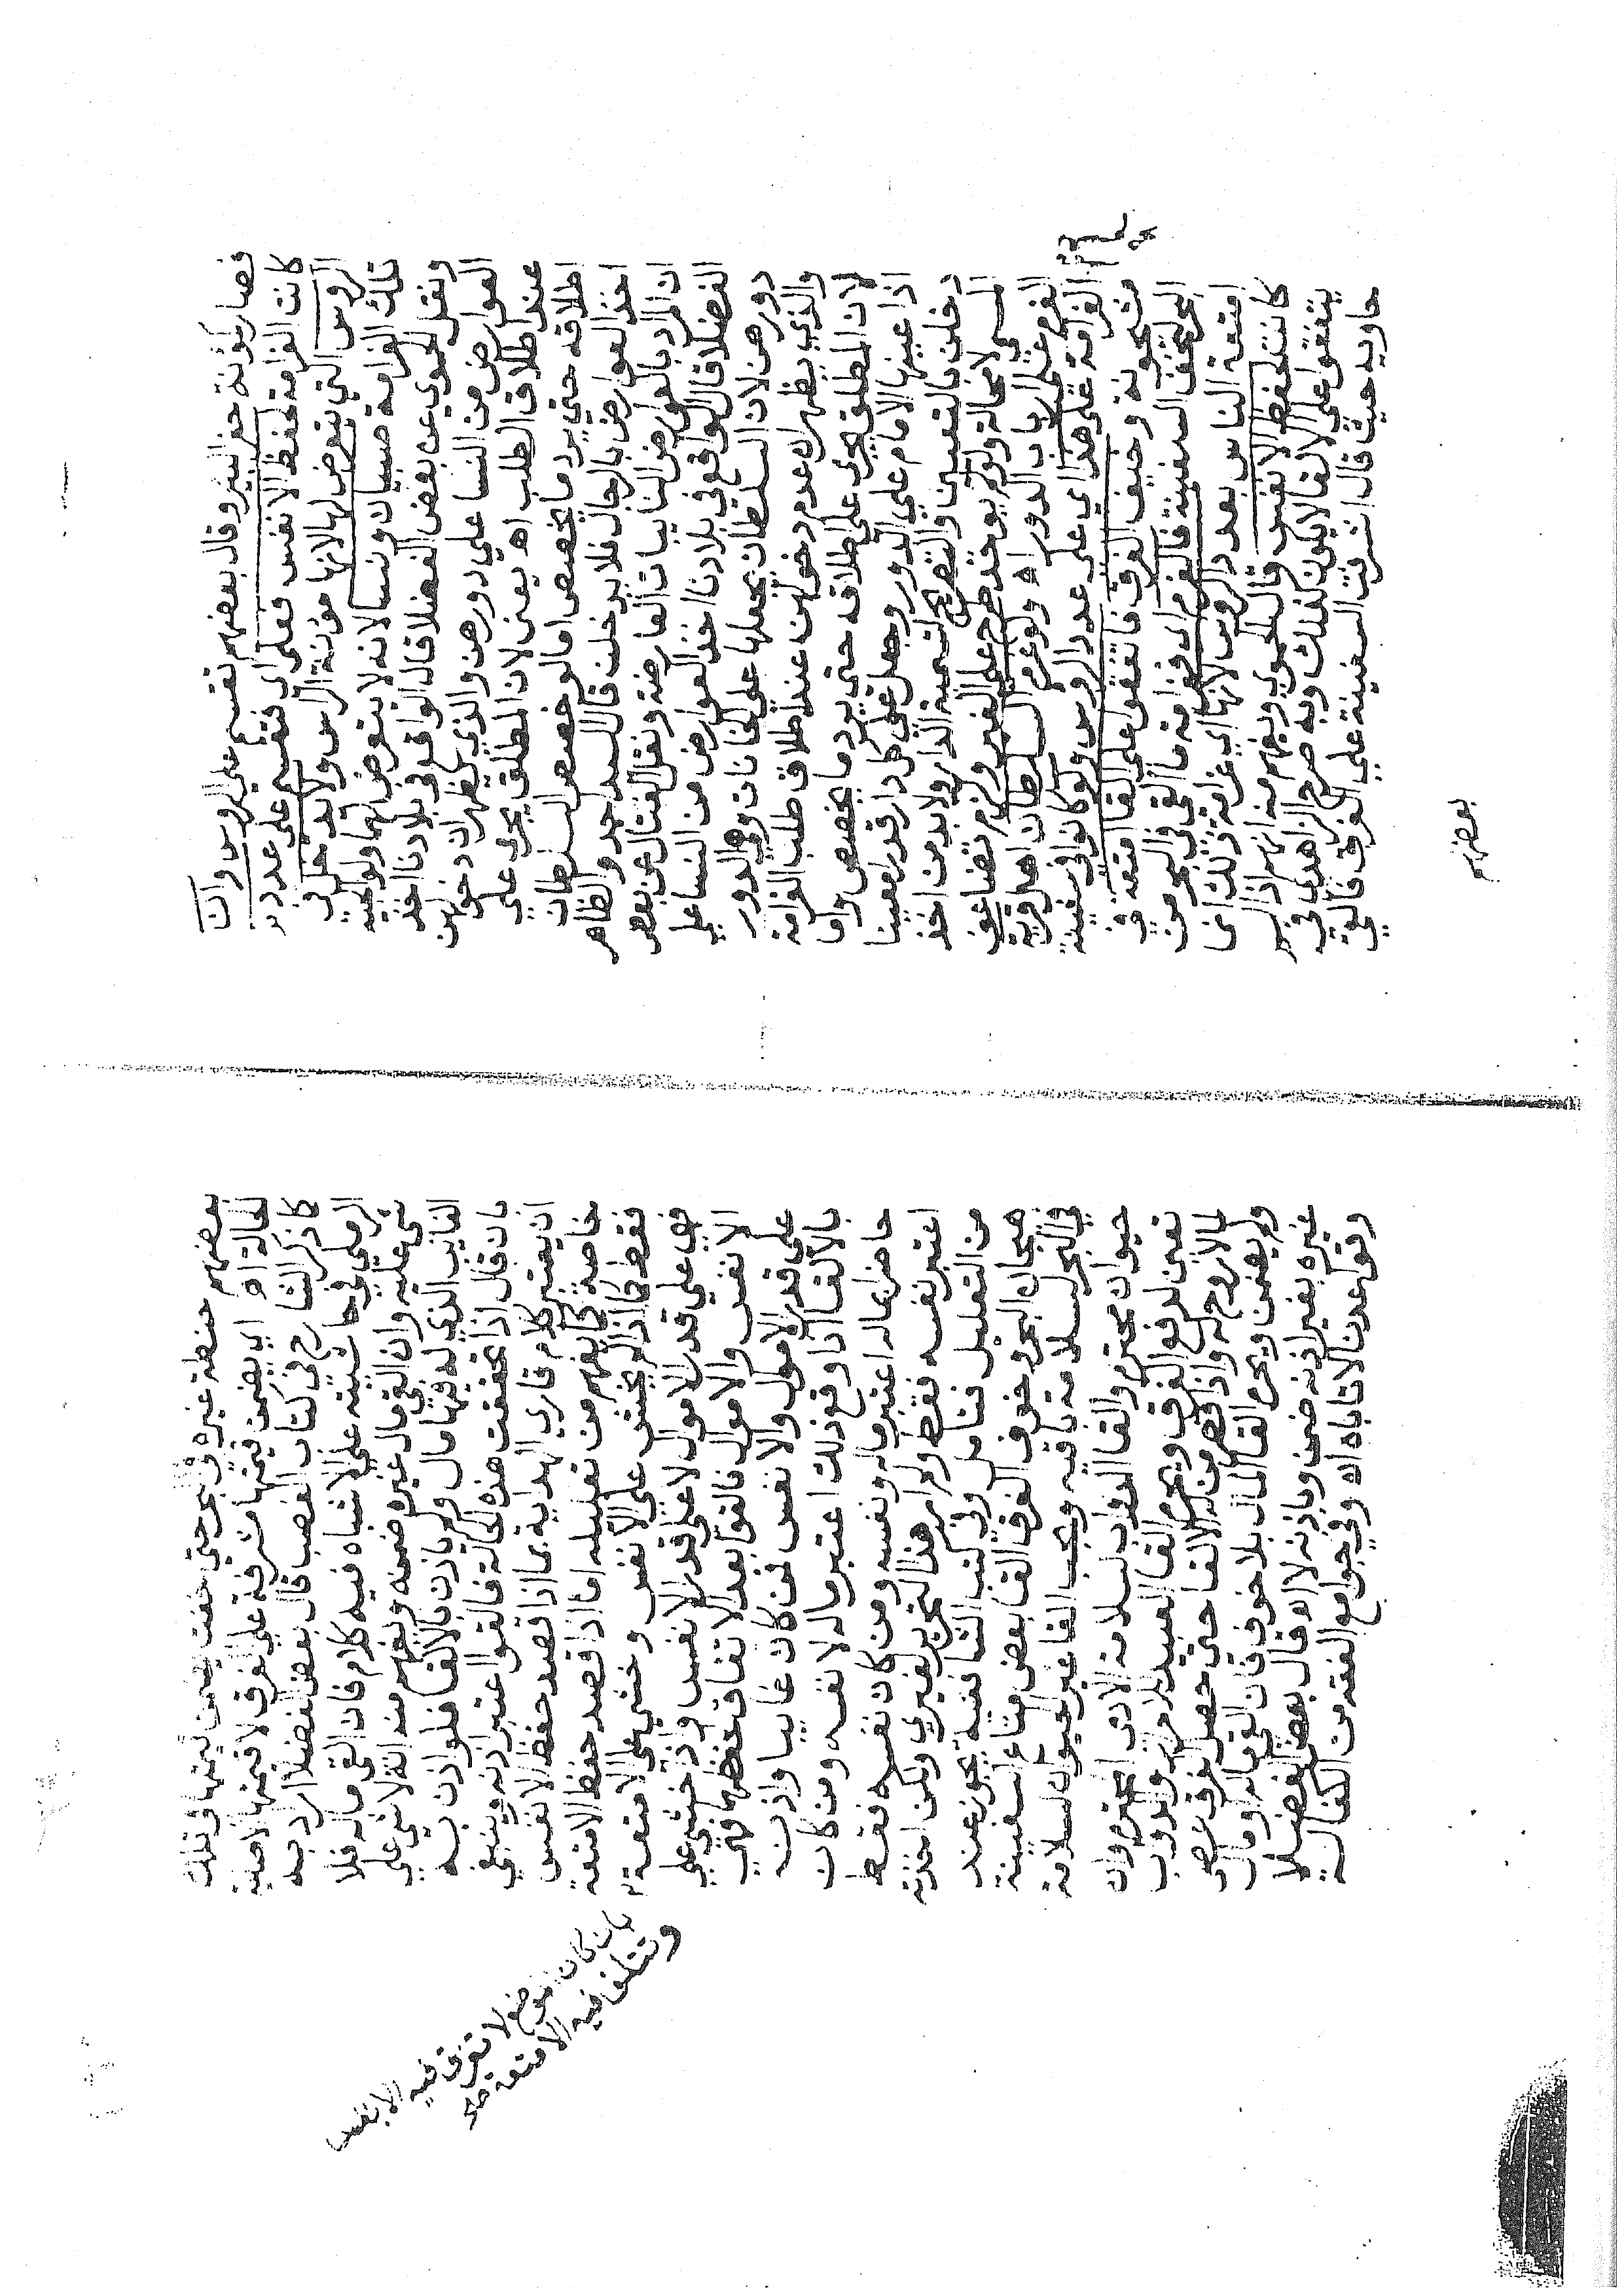 فصار كمؤنة حفر البير وقال بعضهم تقسم علي الروس وان
كانت الغرامة لحفظ الانفس فعلي اي فتقسم علي عدد
الروس التي تتعرض لها لانها مؤنة الراس ولا يدخل في
تلك الغرامة صبيان ونسا لانه لا يتعرض لهما ولوالجيه
ونقل الحموي عن بعض الفضلا قال الواقع في بلادنا اخذ
العوارض من النسا علي دورهن والذي يظهر ان دخولهن
عند اطلاق الطلب اه يعني لان المطلق يجري علي
اطلاقه حتي يرد ما يخصص اما لو خصص السلطان
اخذ العوارض بالرجال فلا يدخلن قال السيد احمد والظاهر
ان المراد بالعوارض النايبات العارضة ونقل الفتال عن بعض
الفضلا قال الواقع في بلادنا اخذ العوارض من النسا علي
دورهن لان السلطان يجعلها علي الخانات وهي الدور
والذي يظهر ان عدم دخولهن عند اطلاق طلب الغرامة
لان المطلق يجري علي اطلاقه حتي يرد ما يخصص واما
اذا عينها الامام علي الدور وجعل علي كل دار قدرا معينا
دخلن بالتعيين والتصريح بتسمية الدار ولا بد من اخذ
المسمي لا محالة ولو لم يوخذ منهم علي الغير ولزم تضاعف
الغرم علي ارباب الدور اه ولو غرم السلطان اهل قرية
الغرامة علي هذا اي علي عدد الروس ولو كانوا في سفينة
مشحونة وخيف الغرق فاتفقوا علي القا امتعة في
البحر لتخف السفينة فالغرم اي فغرامة ما القي في البحر من
امتعة الناس بعدد الروس لانها اي غرامة ذلك اي
كانت لحفظ الانفس قال الحموي ويفهم منه انهم اذا لم
يتفقوا علي الالقا لا يكون كذلك وبه صرح الزاهدي في
حاويه حيث قال اشرفت السفينة علي الغرق فالقي
بعضهم
بعضهم حنطة غيره في البحر حتي خفت يضمن قيمتها في تلك
الحالة اه اي يضمن قيمتها مشرفة علي الغرق لا قيمتها امنة
كما ذكر الشارح في كتاب الغصب قال بعض الفضلا اراد به
الرملي في حاشيته علي الاشباه فيه كلام فان القي ماله فلا
شي عليه وان القي مال غيره ضمنه ويفهم منه انه لا شي علي
الغايب الذي له فيها مال ولم ياذن بالالقا فلو اذن به
بان قال اذا تحققت هذه الحالة فالقوا اعتبر اذنه وينبغي
ان يعتبر كلام قاري الهداية بما اذا قصد حفظ الانفس
خاصة كما يفهم من تعليله اما اذا قصد حفظ الامتعة
فقط كما اذا لم يخش علي الانفس وخشي علي الامتعة
بان كان الموضع لا تغرق فيه الانفس
وتتلف فيه الامتعة صح
فهي علي قدر الاموال لا علي قدر الانفس واذا خشي علي
الانفس والاموال فالقوا بعد الاتفاق لحفظهما فهي
علي قدر الاموال والانفس فمن كان غايبا واذن
بالالقا اذا وقع ذلك اعتبر ماله لا نفسه ومن كان
حاضرا بماله اعتبر ماله ونفسه ومن كان نفسه فقط
اعتبر نفسه فقط ولم ار هذا التحرير لغيري ولكن اخذته
من التعليل فتامل وفي كتب الشافعية يجوز عند
هيجان البحر وخوف الغرق القا بعض متاع السفينة
في البحر لسلامة باقيه ويجب القا غير الحيوان لسلامة
حيوان محترم والقا الدواب لسلامة الادمي المحترم وان
تعين لدفع الغرق ويحرم القا العبيد للاحرار والدواب
لما لا روح له واذا قصر من الالقا حتي حصل الغرق عصي
ولم يضمن ويحرم القا المال بلا خوف فان القي ماله او مال
غيره بغير اذنه ضمن وباذنه لا اه وقال بعض الفضلا
وقواعدنا لا تاباه اه وفي جوامع الفقه من الكفالة